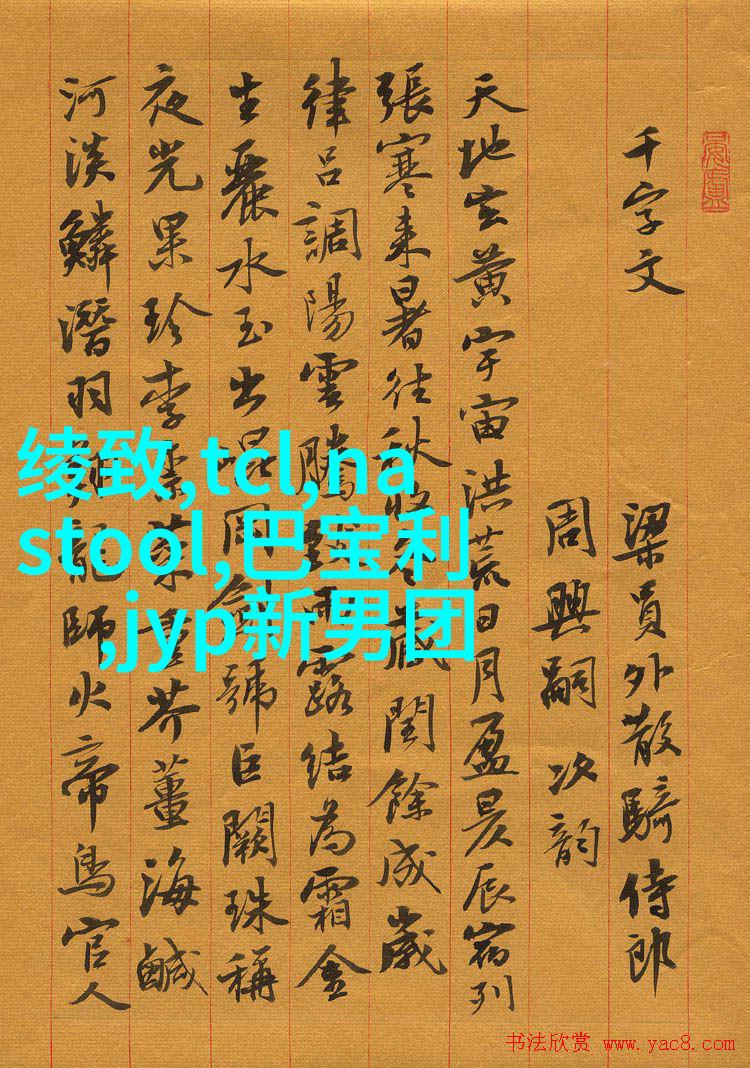 千字文 梁員外散騎侍郎
周興嗣次韵
天地玄黃宇宙洪荒日月盈昃辰宿列
張寒来暑往秋收冬藏閏餘成歲
律呂調陽雲騰致雨露結為霜金
生麗水玉出崐岡劍號巨闕珠稱
夜光果珍李柰菜重芥薑海鹹
河淡鱗潛羽翔龍師火帝鳥官人
绫致,tcl,na
stool,巴宝利
,jyp新男团
书法欣赏 www.yac8.com